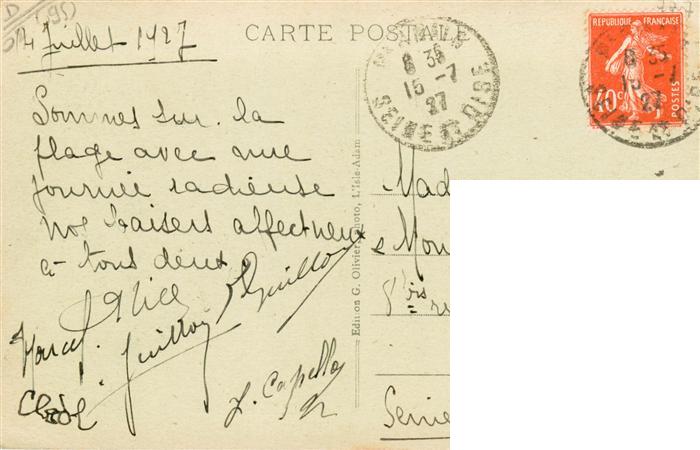 D (95)
14 Juillet 1927
CARTE POSTALE
8 35
15 - 7
27
SEINE ET OISE
REPUBLIQUE FRANÇAISE
40 c
POSTES
Sommes sur la
plage avec une
journée radieuse
nos baisers affectueux
à tous deux
Alice
Guillou
Marcel
J. Capella
Edition G. Olivier, Photo, L'Isle-Adam
Mad
e Mon
Seine